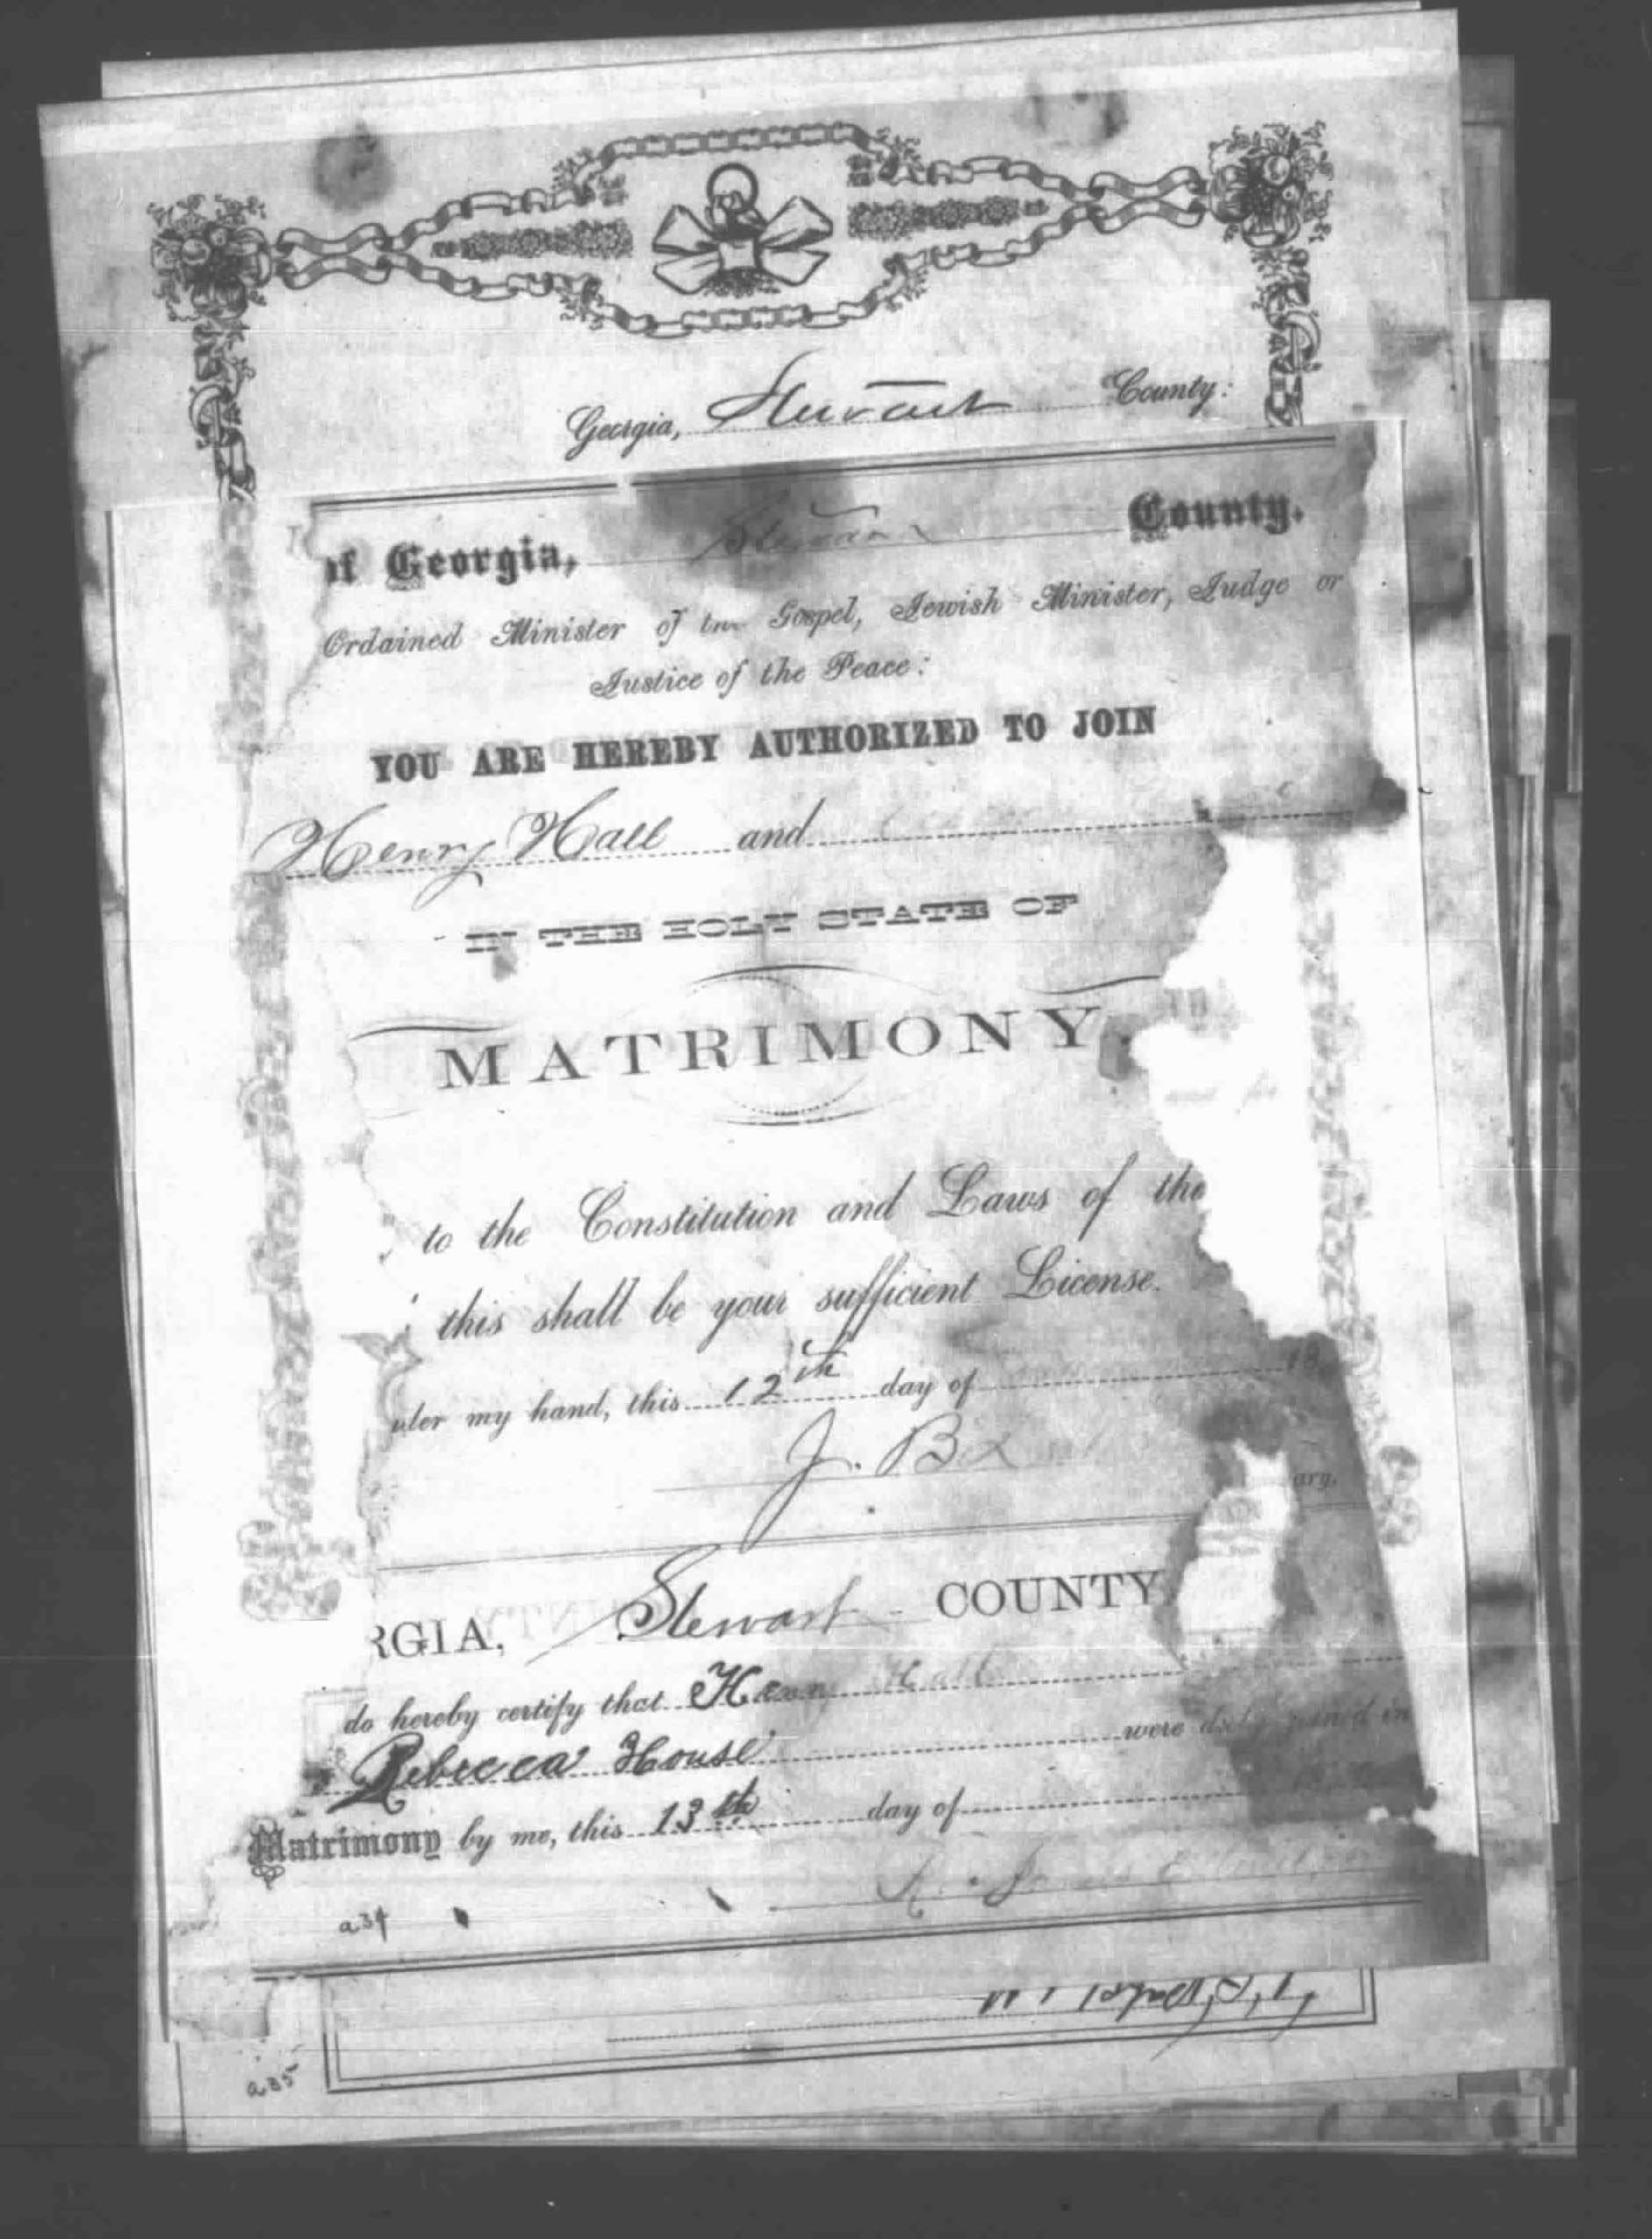 Georgia, Stewart County:
of Georgia, Stewart County.
Ordained Minister of the Gospel, Jewish Minister, Judge or
Justice of the Peace:
YOU ARE HEREBY AUTHORIZED TO JOIN
Henry Hall and
IN THE HOLY STATE OF
MATRIMONY,
to the Constitution and Laws of the
this shall be your sufficient License.
my hand, this 12th day of 18
J. B
ary.
RGIA, Stewart COUNTY
do hereby certify that Henry Hall
Rebecca House were duly joined in
Matrimony by me, this 13th day of
a34
a35